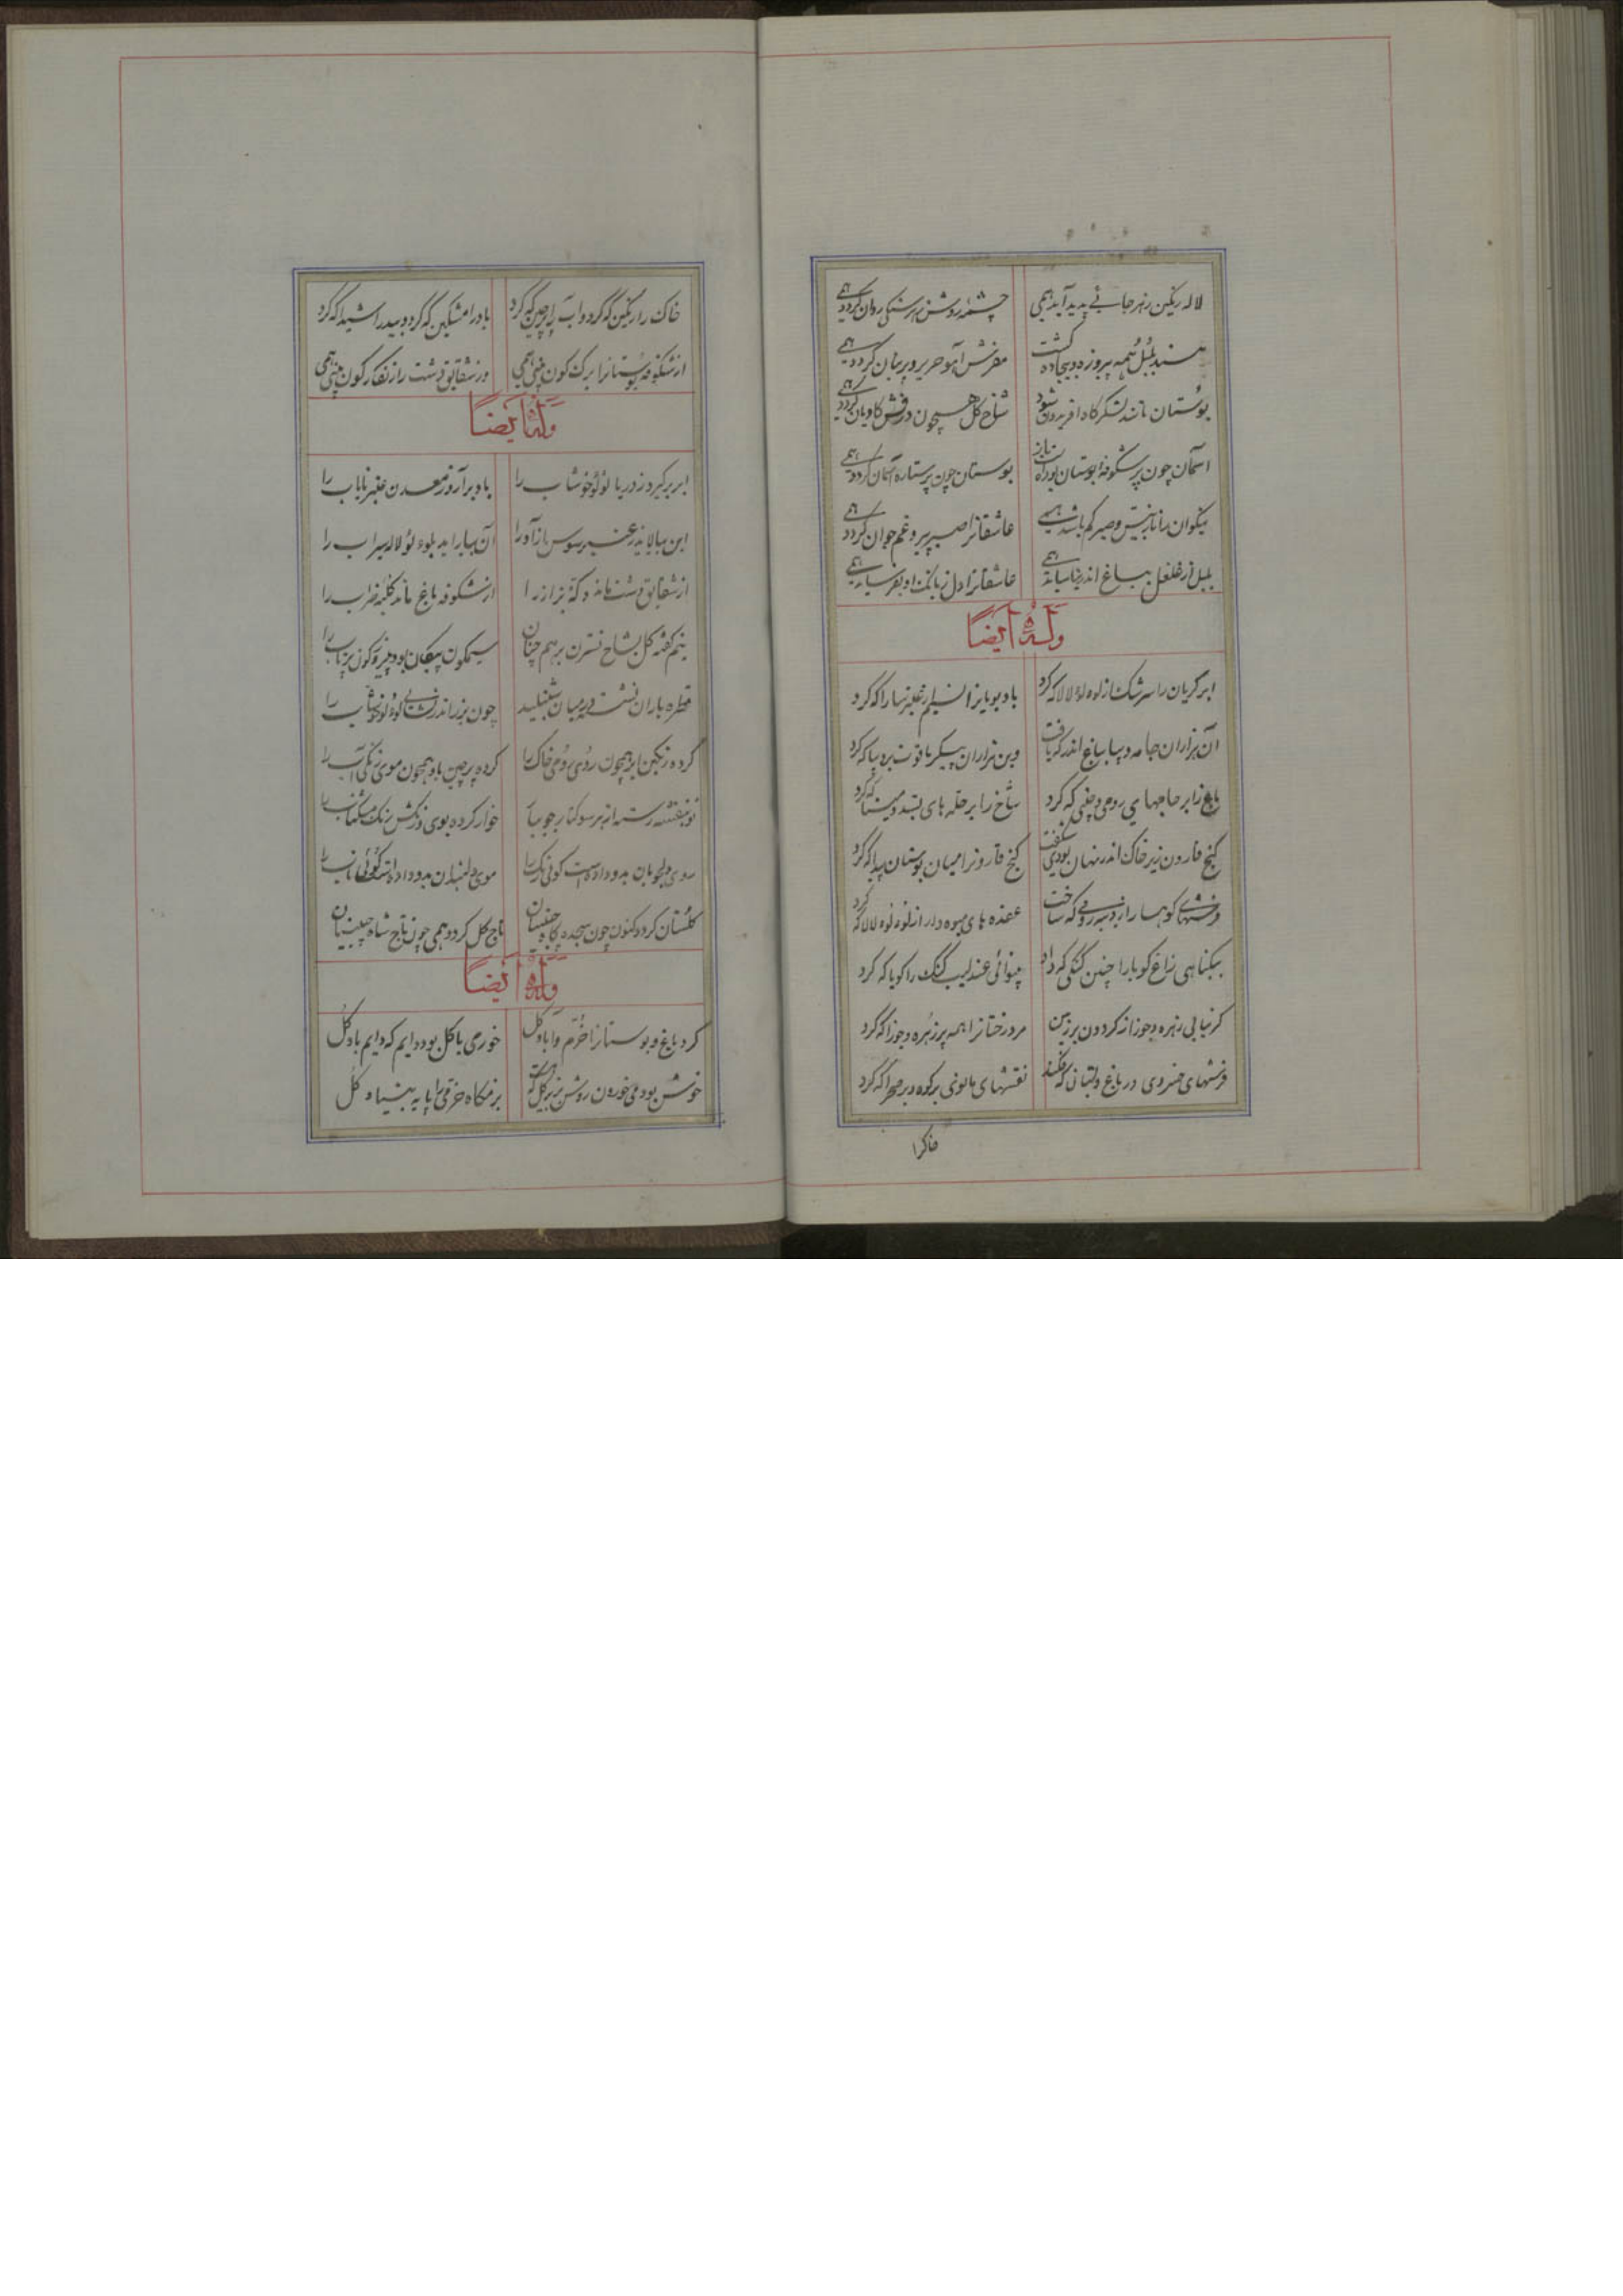 لاله رنگین زهر جائی پدید آید همی چشمه روشن زهر سنگی روان گردد همی
مسند بلبل همه پیروزه و بیجاده گشت مفرش آهو حریر و پرنیان گردد همی
بوستان مانند لشکرگاه افریدون شود شاخ گل همچون درفش کاویان گردد همی
آسمان چون پر شکوفه بوستان بود از بوستان چون پر ستاره آسمان گردد همی
نیکوان را ناز بیش و صبر کم باشد همی عاشقانرا صبر پیر و غم جوان گردد همی
بلبل از غلغل بباغ اندر همی عاشقانرا دل زبانگ او همی
وله ایضاً
ابر گریان را سرشک از لوءلوء لالا که کرد باد بویا را نسیم از عنبر سارا که کرد
آن هزاران جامه دیبا بباغ اندر که بافت وین هزاران پیکر یاقوت بر دیبا که کرد
باغ را بر جامهای رومی و چینی که کرد شاخ را بر حله های بسد و مینا که کرد
گنج قارون زیر خاک اندر نهان بودی گنج قارونرا میان بوستان پیدا که کرد
فرشهای کوهسار از دیبه رومی که ساخت عقده های میوه دار از لوءلوء لالا که کرد
بیگناهی زاغ گویا را چنین گنگی که داد بینوائی عندلیب گنگ را گویا که کرد
گر نیابی زهره و جوزا نه گردون بر زمین مر درختانرا همه پر زهره و جوزا که کرد
فرشهای خسروی در باغ و بستان که فکند نقشهای مانوی بر کوه و بر صحرا که کرد
خاکرا
خاک را رنگین که گرد و آب را پرچین که کرد باد را مشکین که کرد و بید را شیدا که کرد
از شکوفه بوستانرا برگ گون بینی همی وز شقایق دشت را زنگار گون بینی همی
وله ایضاً
ابر برگیرد ز دریا لوءلوء خوشاب را باد بر آرد ز معدن عنبر نایاب را
این بیالاید بعنبر سوسن آزاد را آن بیاراید بلوءلوء لاله سیراب را
از شقایق دشت ماند دکه بزاز را از شکوفه باغ ماند کلبه ضراب را
نیم کفته گل بشاخ نسترن بر هم چنان سیمگون پیکان بود پیروزه گون پرتاب را
قطره باران نشسته در میان شنبلید چون بزر اندر نشانی لوءلوء خوشاب را
کرده رنگین ابر همچون روی رومی خاک را کرده پرچین باد همچون موی زنگی آب را
نو بنفشه رسته از هر سو کنار جویبار خوار کرده بوی و رنگش رنگ مشکناب را
روی دلجویان بدو داده است گوئی رنگ را موی دلبندان بدو داده است گوئی تاب را
گلستان گردد کنون چون سجده گاه چینیان تاج گل گردد همی چون تاج شاه چینیان
وله ایضاً
کرد باغ و بوستانرا خرم و آباد گل خوری با گل بود دایم که دایم باد گل
خوش بود می خوردن روشن بزیر گل بزمگاه خرمی را پایه بنیاد گل